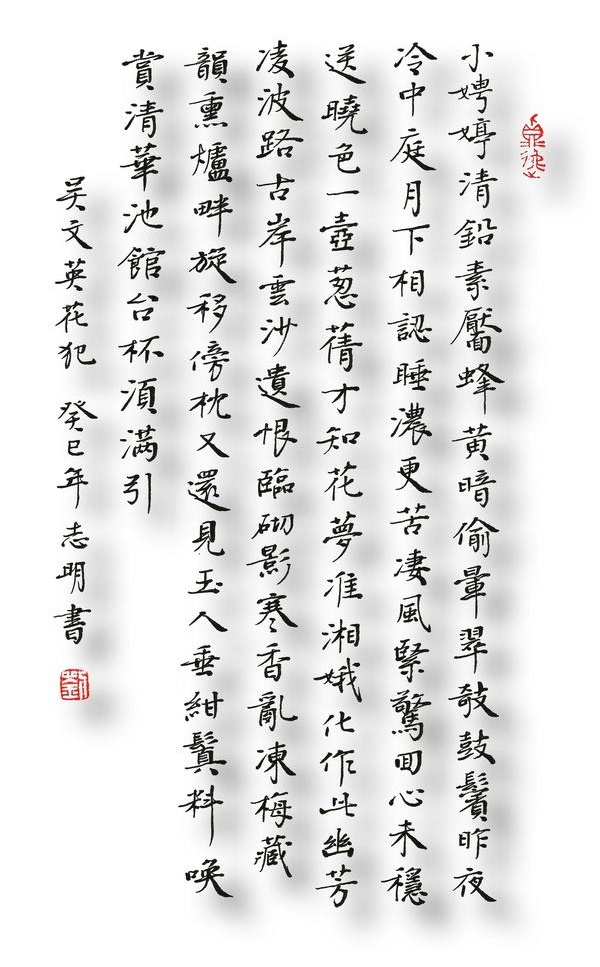 小娉婷清鉛素靨蜂黃暗偷暈翠攲鼓鬢昨夜
冷中庭月下相認睡濃更苦凄風緊驚回心未穩
送曉色一壺葱蒨才知花夢准湘娥化作此幽芳
凌波路古岸雲沙遺恨臨砌影寒香亂凍梅藏
韻熏爐畔旋移傍枕又還見玉人垂紺鬒料喚
賞清華池館台杯須滿引
吳文英花犯 癸巳年志明書
劉